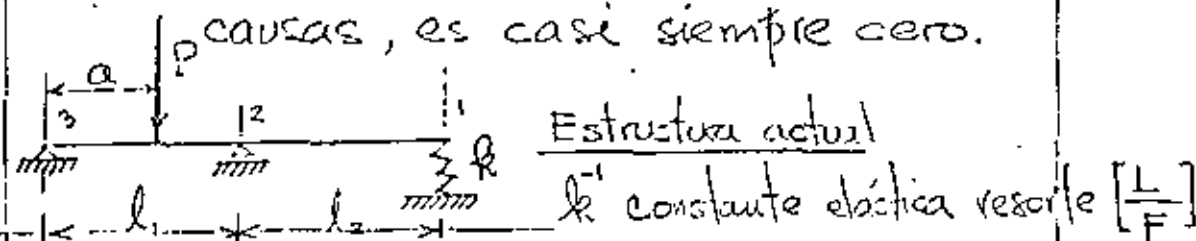 causas, es casi siempre cero.
P
a
3
2
1
Estructura actual
k
k⁻¹ constante elástica resorte [L/F]
l₁
l₂